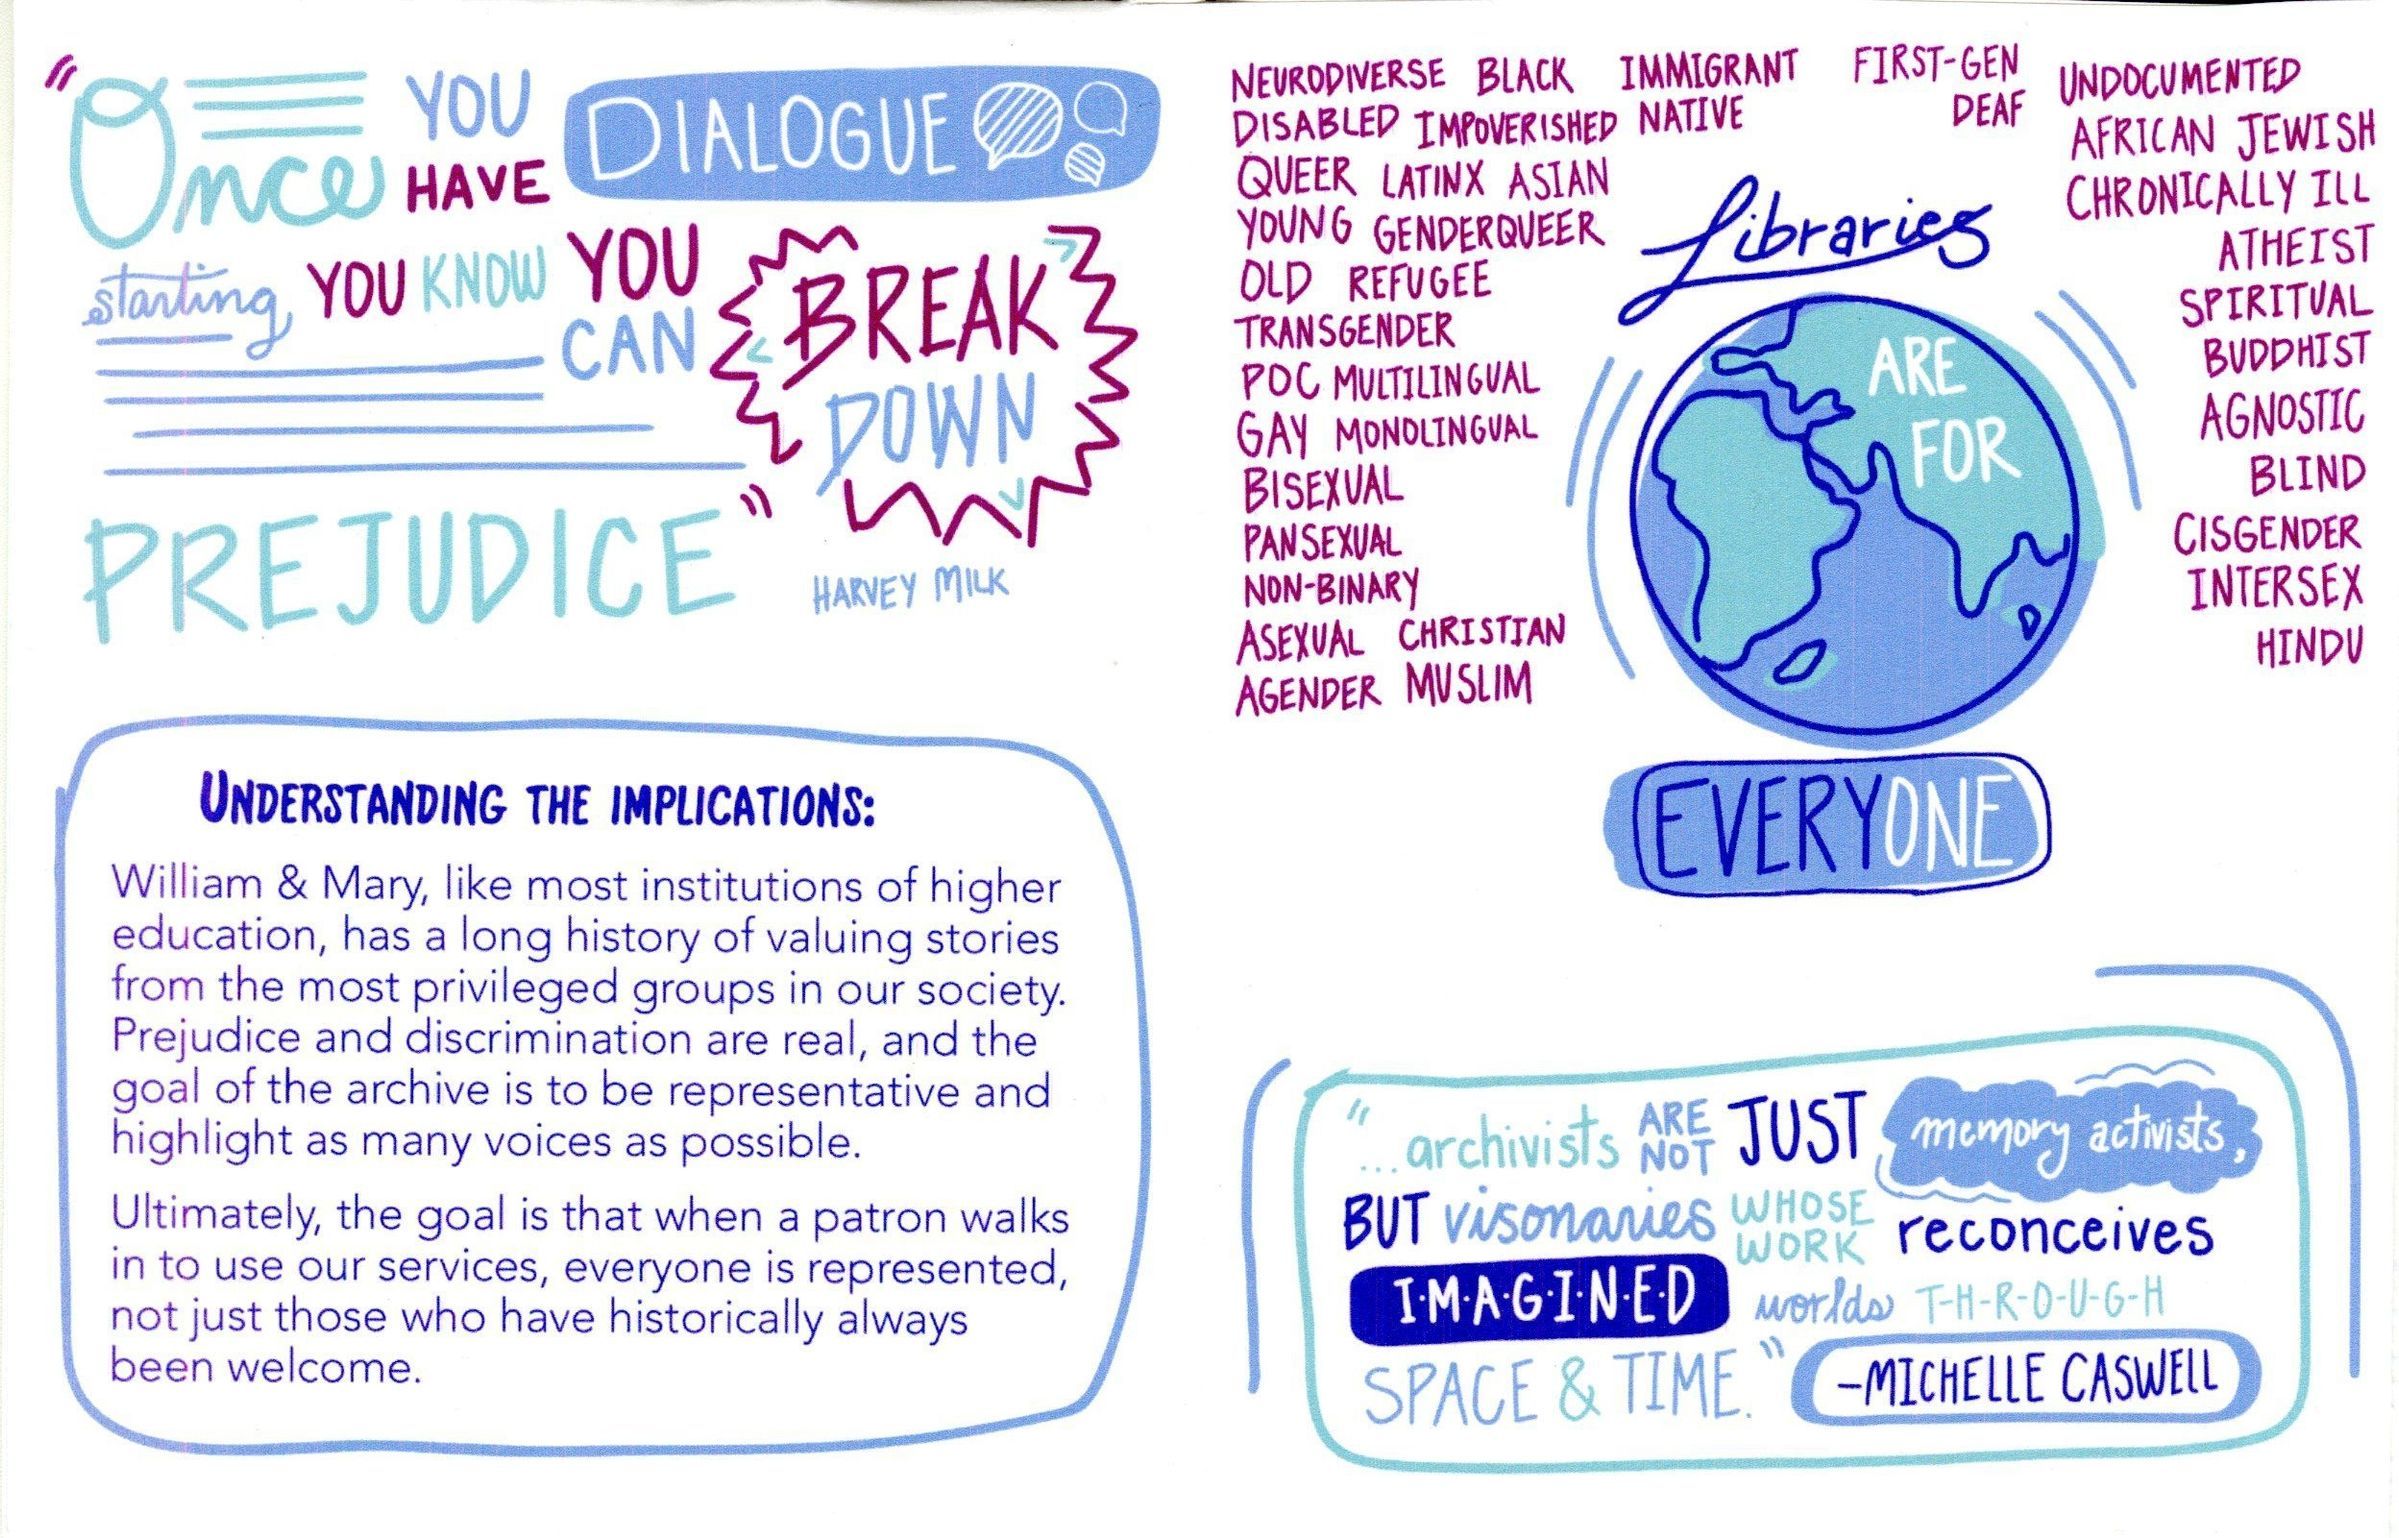 "Once YOU HAVE DIALOGUE
starting, YOU KNOW YOU CAN BREAK DOWN
PREJUDICE"
HARVEY MILK
UNDERSTANDING THE IMPLICATIONS:
William & Mary, like most institutions of higher
education, has a long history of valuing stories
from the most privileged groups in our society.
Prejudice and discrimination are real, and the
goal of the archive is to be representative and
highlight as many voices as possible.
Ultimately, the goal is that when a patron walks
in to use our services, everyone is represented,
not just those who have historically always
been welcome.
NEURODIVERSE BLACK IMMIGRANT FIRST-GEN UNDOCUMENTED
DISABLED IMPOVERISHED NATIVE DEAF AFRICAN JEWISH
QUEER LATINX ASIAN CHRONICALLY ILL
YOUNG GENDERQUEER ATHEIST
OLD REFUGEE SPIRITUAL
TRANSGENDER BUDDHIST
POC MULTILINGUAL AGNOSTIC
GAY MONOLINGUAL BLIND
BISEXUAL CISGENDER
PANSEXUAL INTERSEX
NON-BINARY HINDU
ASEXUAL CHRISTIAN
AGENDER MUSLIM
Libraries
ARE
FOR
EVERYONE
"...archivists ARE NOT JUST memory activists,
BUT visonaries WHOSE WORK reconceives
I·M·A·G·I·N·E·D worlds T-H-R-O-U-G-H
SPACE & TIME." -MICHELLE CASWELL